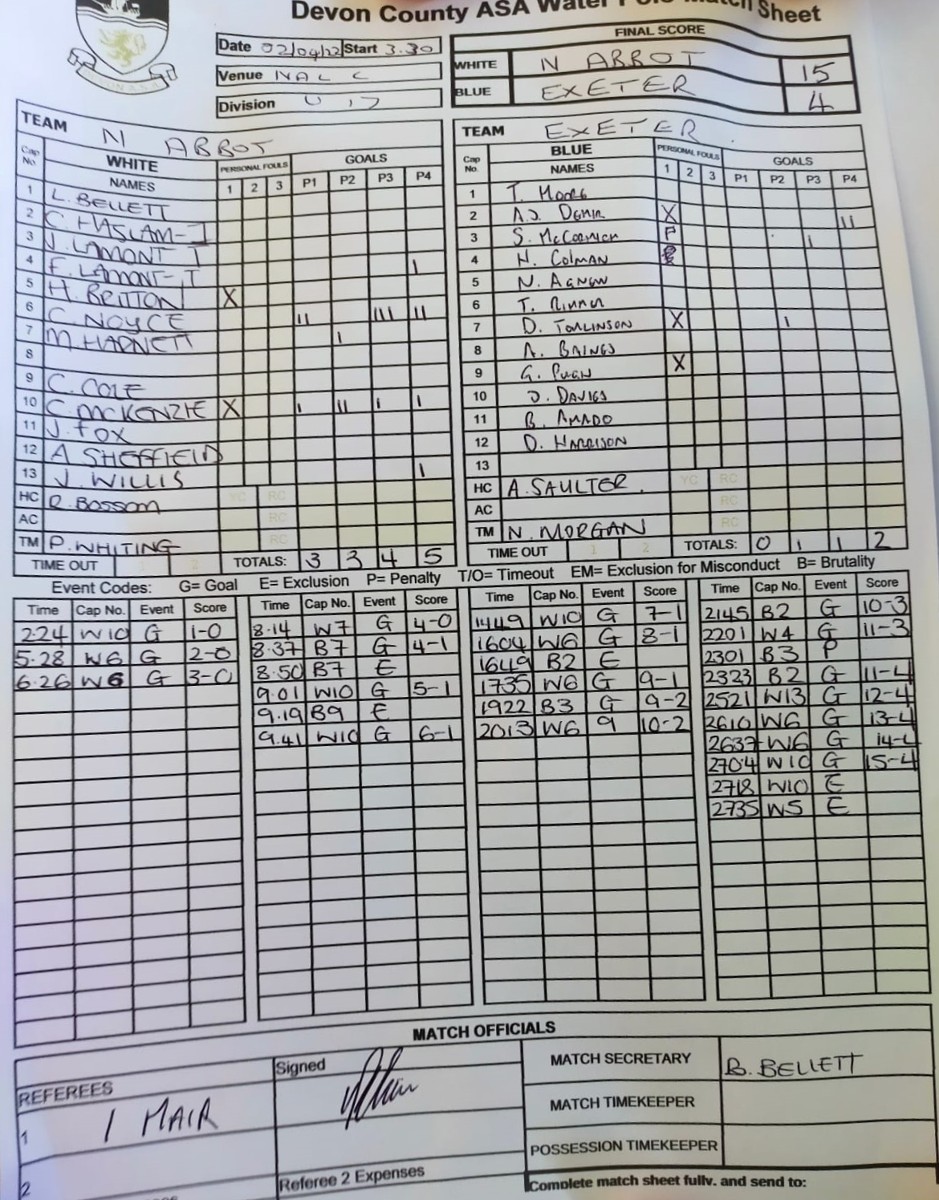 Devon County ASA Water Polo Match Sheet
Date 02/04/22 Start 3.30
Venue NALC
Division U17
FINAL SCORE
WHITE N ABBOT 15
BLUE EXETER 4
TEAM N ABBOT
Cap No WHITE NAMES PERSONAL FOULS 1 2 3 GOALS P1 P2 P3 P4
1 L. BELLETT
2 C. HASLAM-J
3 J. LAMONT T
4 F. LAMONT-T I
5 H. BRITTON X
6 C. NOYCE II III II
7 M. HADNETT I
8
9 C. COLE
10 C. MCKENZIE X I II I I
11 J. FOX
12 A SHEFFIELD
13 J. WILLIS I
HC R. BOSSOM YC RC
AC RC
TM P. WHITING RC
TIME OUT 1 2 TOTALS: 3 3 4 5
TEAM EXETER
Cap No. BLUE NAMES PERSONAL FOULS 1 2 3 GOALS P1 P2 P3 P4
1 T. MOORE
2 A.J. X II
3 S. McCORMICK P I
4 H. COLMAN
5 N. AGNEW
6 T.
7 D. TOMLINSON X I
8 A. BAINGS
9 G. PUGH X
10 J. DAVIES
11 B. AMADO
12 D. HARRISON
13
HC A. SAULTER YC RC
AC RC
TM N. MORGAN RC
TIME OUT 1 2 TOTALS: 0 1 1 2
Event Codes: G= Goal E= Exclusion P= Penalty T/O= Timeout EM= Exclusion for Misconduct B= Brutality
Time Cap No. Event Score
2.24 W10 G 1-0
5.28 W6 G 2-0
6.26 W6 G 3-0
Time Cap No. Event Score
8.14 W7 G 4-0
8.37 B7 G 4-1
8.50 B7 E
9.01 W10 G 5-1
9.19 B9 E
9.41 W10 G 6-1
Time Cap No. Event Score
1449 W10 G 7-1
1604 W6 G 8-1
1649 B2 E
1735 W6 G 9-1
1922 B3 G 9-2
2013 W6 9 10-2
Time Cap No. Event Score
2145 B2 G 10-3
2201 W4 G 11-3
2301 B3 P
2323 B2 G 11-4
2521 W13 G 12-4
2610 W6 G 13-4
2637 W6 G 14-4
2704 W10 G 15-4
2718 W10 E
2735 W5 E
MATCH OFFICIALS
REFEREES
1 I MAIR
2
Signed
Referee 2 Expenses
MATCH SECRETARY B. BELLETT
MATCH TIMEKEEPER
POSSESSION TIMEKEEPER
Complete match sheet fully, and send to: